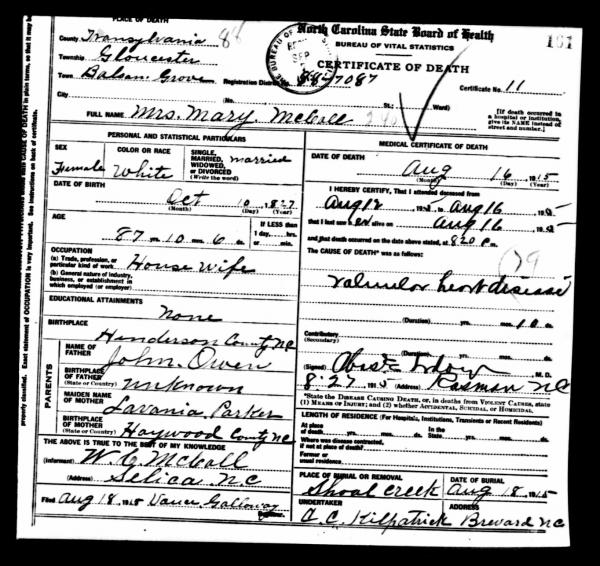 PLACE OF DEATH
County Transylvania
Township Gloucester
Town Balsam Grove
City
North Carolina State Board of Health
BUREAU OF VITAL STATISTICS
CERTIFICATE OF DEATH
Registration District No. 88-7087 Certificate No. 11
(No. St.; Ward)
[If death occurred in a hospital or institution, give its NAME instead of street and number.]
FULL NAME Mrs. Mary McCall
PERSONAL AND STATISTICAL PARTICULARS
SEX Female
COLOR OR RACE White
SINGLE, MARRIED, WIDOWED, OR DIVORCED (Write the word) married
DATE OF BIRTH
Oct 10, 1827
(Month) (Day) (Year)
AGE
87 yrs. 10 mos. 6 ds.
If LESS than 1 day, hrs. or min.
OCCUPATION
(a) Trade, profession, or particular kind of work House Wife
(b) General nature of industry, business, or establishment in which employed (or employer)
EDUCATIONAL ATTAINMENTS
None
BIRTHPLACE Henderson County NC
PARENTS
NAME OF FATHER John Owen
BIRTHPLACE OF FATHER (State or Country) unknown
MAIDEN NAME OF MOTHER Lavania Parker
BIRTHPLACE OF MOTHER (State or Country) Haywood County NC
THE ABOVE IS TRUE TO THE BEST OF MY KNOWLEDGE
(Informant) W. C. McCall
(Address) Selica N.C
Filed Aug 18, 1915 Galloway
MEDICAL CERTIFICATE OF DEATH
DATE OF DEATH
Aug 16 1915
(Month) (Day) (Year)
I HEREBY CERTIFY, That I attended deceased from
Aug 12 1915 to Aug 16, 1915
that I last saw her alive on Aug 16, 1915
and that death occurred on the date above stated, at 8:20 P m.
The CAUSE OF DEATH* was as follows:
79
valvulor heart disease
(Duration) yrs. mos. 10 ds.
Contributory (Secondary)
(Duration) yrs. mos. ds.
(Signed) M. D.
8-27 1915 (Address) Rosman NC
*State the DISEASE CAUSING DEATH, or, in deaths from VIOLENT CAUSES, state (1) MEANS OF INJURY; and (2) whether ACCIDENTAL, SUICIDAL, OR HOMICIDAL.
LENGTH OF RESIDENCE (For Hospitals, Institutions, Transients or Recent Residents)
At place of death yrs. mos. ds. In the State yrs. mos. ds.
Where was disease contracted, if not at place of death?
Former or usual residence
PLACE OF BURIAL OR REMOVAL Shoal Creek
DATE OF BURIAL Aug 18, 1915
UNDERTAKER C. C. Kilpatrick
ADDRESS Brevard NC